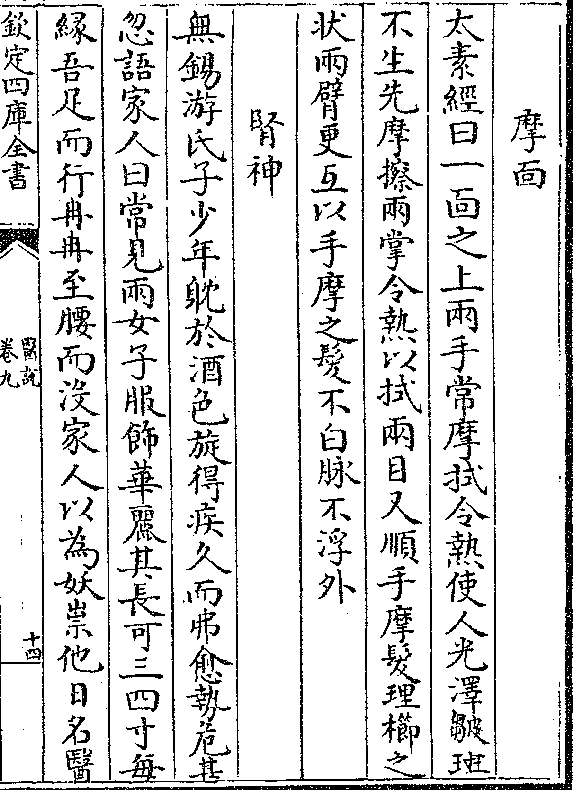 摩面
太素經曰一面之上兩手常摩拭令熱使人光澤皺斑
不生先摩擦兩掌令熱以拭兩目又順手摩髮理櫛之
狀兩臂更互以手摩之髮不白脉不浮外
腎神
無錫游氏子少年躭於酒色旋得疾久而弗愈勢危甚
忽語家人曰常見兩女子服飾華麗其長可三四寸每
緣吾足而行冉冉至腰而沒家人以為妖祟他日名醫
欽定四庫全書
醫説
卷九
十四